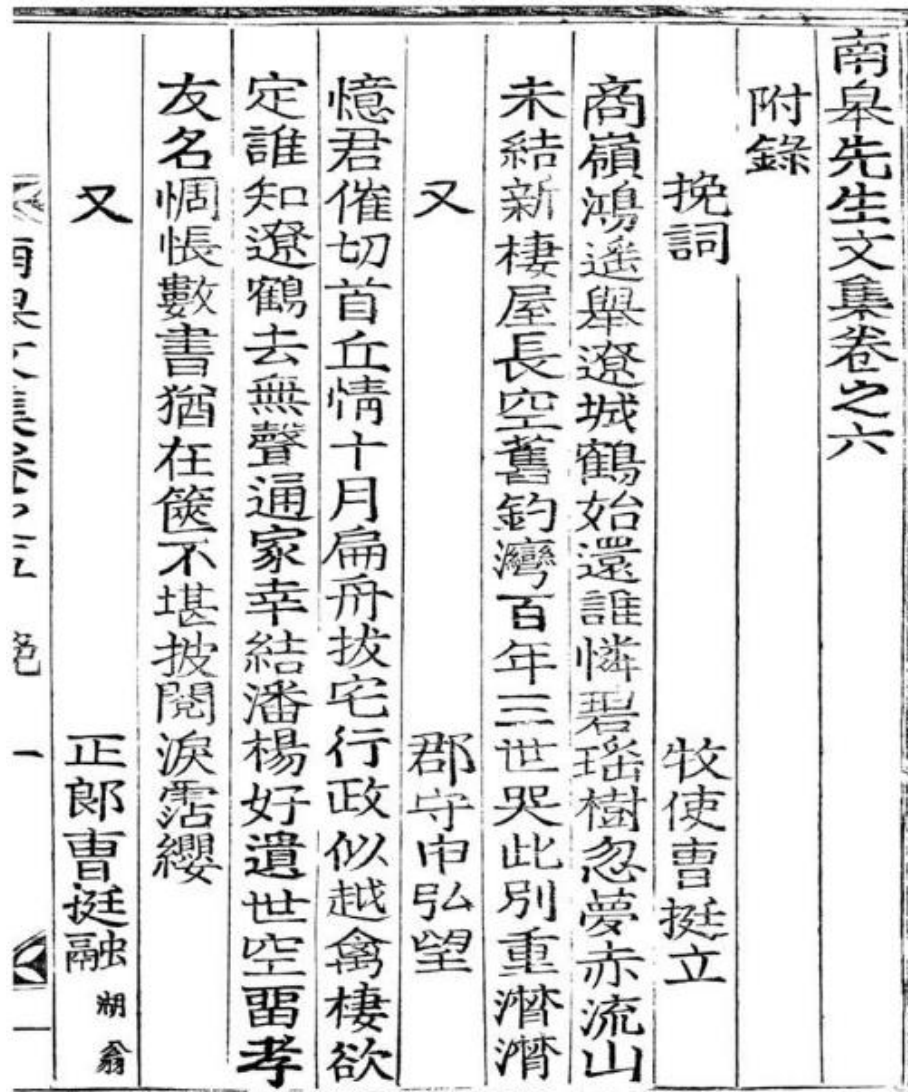 南皐先生文集卷之六
附錄
挽詞 牧使曺挺立
商嶺鴻遥舉遼城鶴始還誰憐碧瑤樹忽夢赤流山
未結新棲屋長空舊釣灣百年三世哭此別重潸潸
又 郡守申弘望
憶君催切首丘情十月扁舟拔宅行政似越禽棲欲
定誰知遼鶴去無聲通家幸結潘楊好遺世空畱孝
友名惆悵數書猶在篋不堪披閱淚霑纓
又 正郎曺挺融 湖翁
一